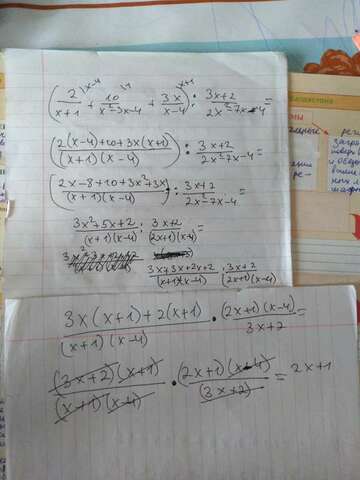 (2/(x+1) \x-4 + 10/(x²-3x-4) \1 + 3x/(x-4) \x+1) : (3x+2)/(2x²-7x-4) =
((2(x-4)+10+3x(x+1))/((x+1)(x-4))) : (3x+2)/(2x²-7x-4) =
((2x-8+10+3x²+3x)/((x+1)(x-4))) : (3x+2)/(2x²-7x-4) =
(3x²+5x+2)/((x+1)(x-4)) : (3x+2)/((2x+1)(x-4)) =
(3x²+3x+2x+2)/((x+1)(x-4)) : (3x+2)/((2x+1)(x-4))
(3x(x+1)+2(x+1))/((x+1)(x-4)) · ((2x+1)(x-4))/(3x+2) =
((3x+2)(x+1))/((x+1)(x-4)) · ((2x+1)(x-4))/(3x+2) = 2x+1